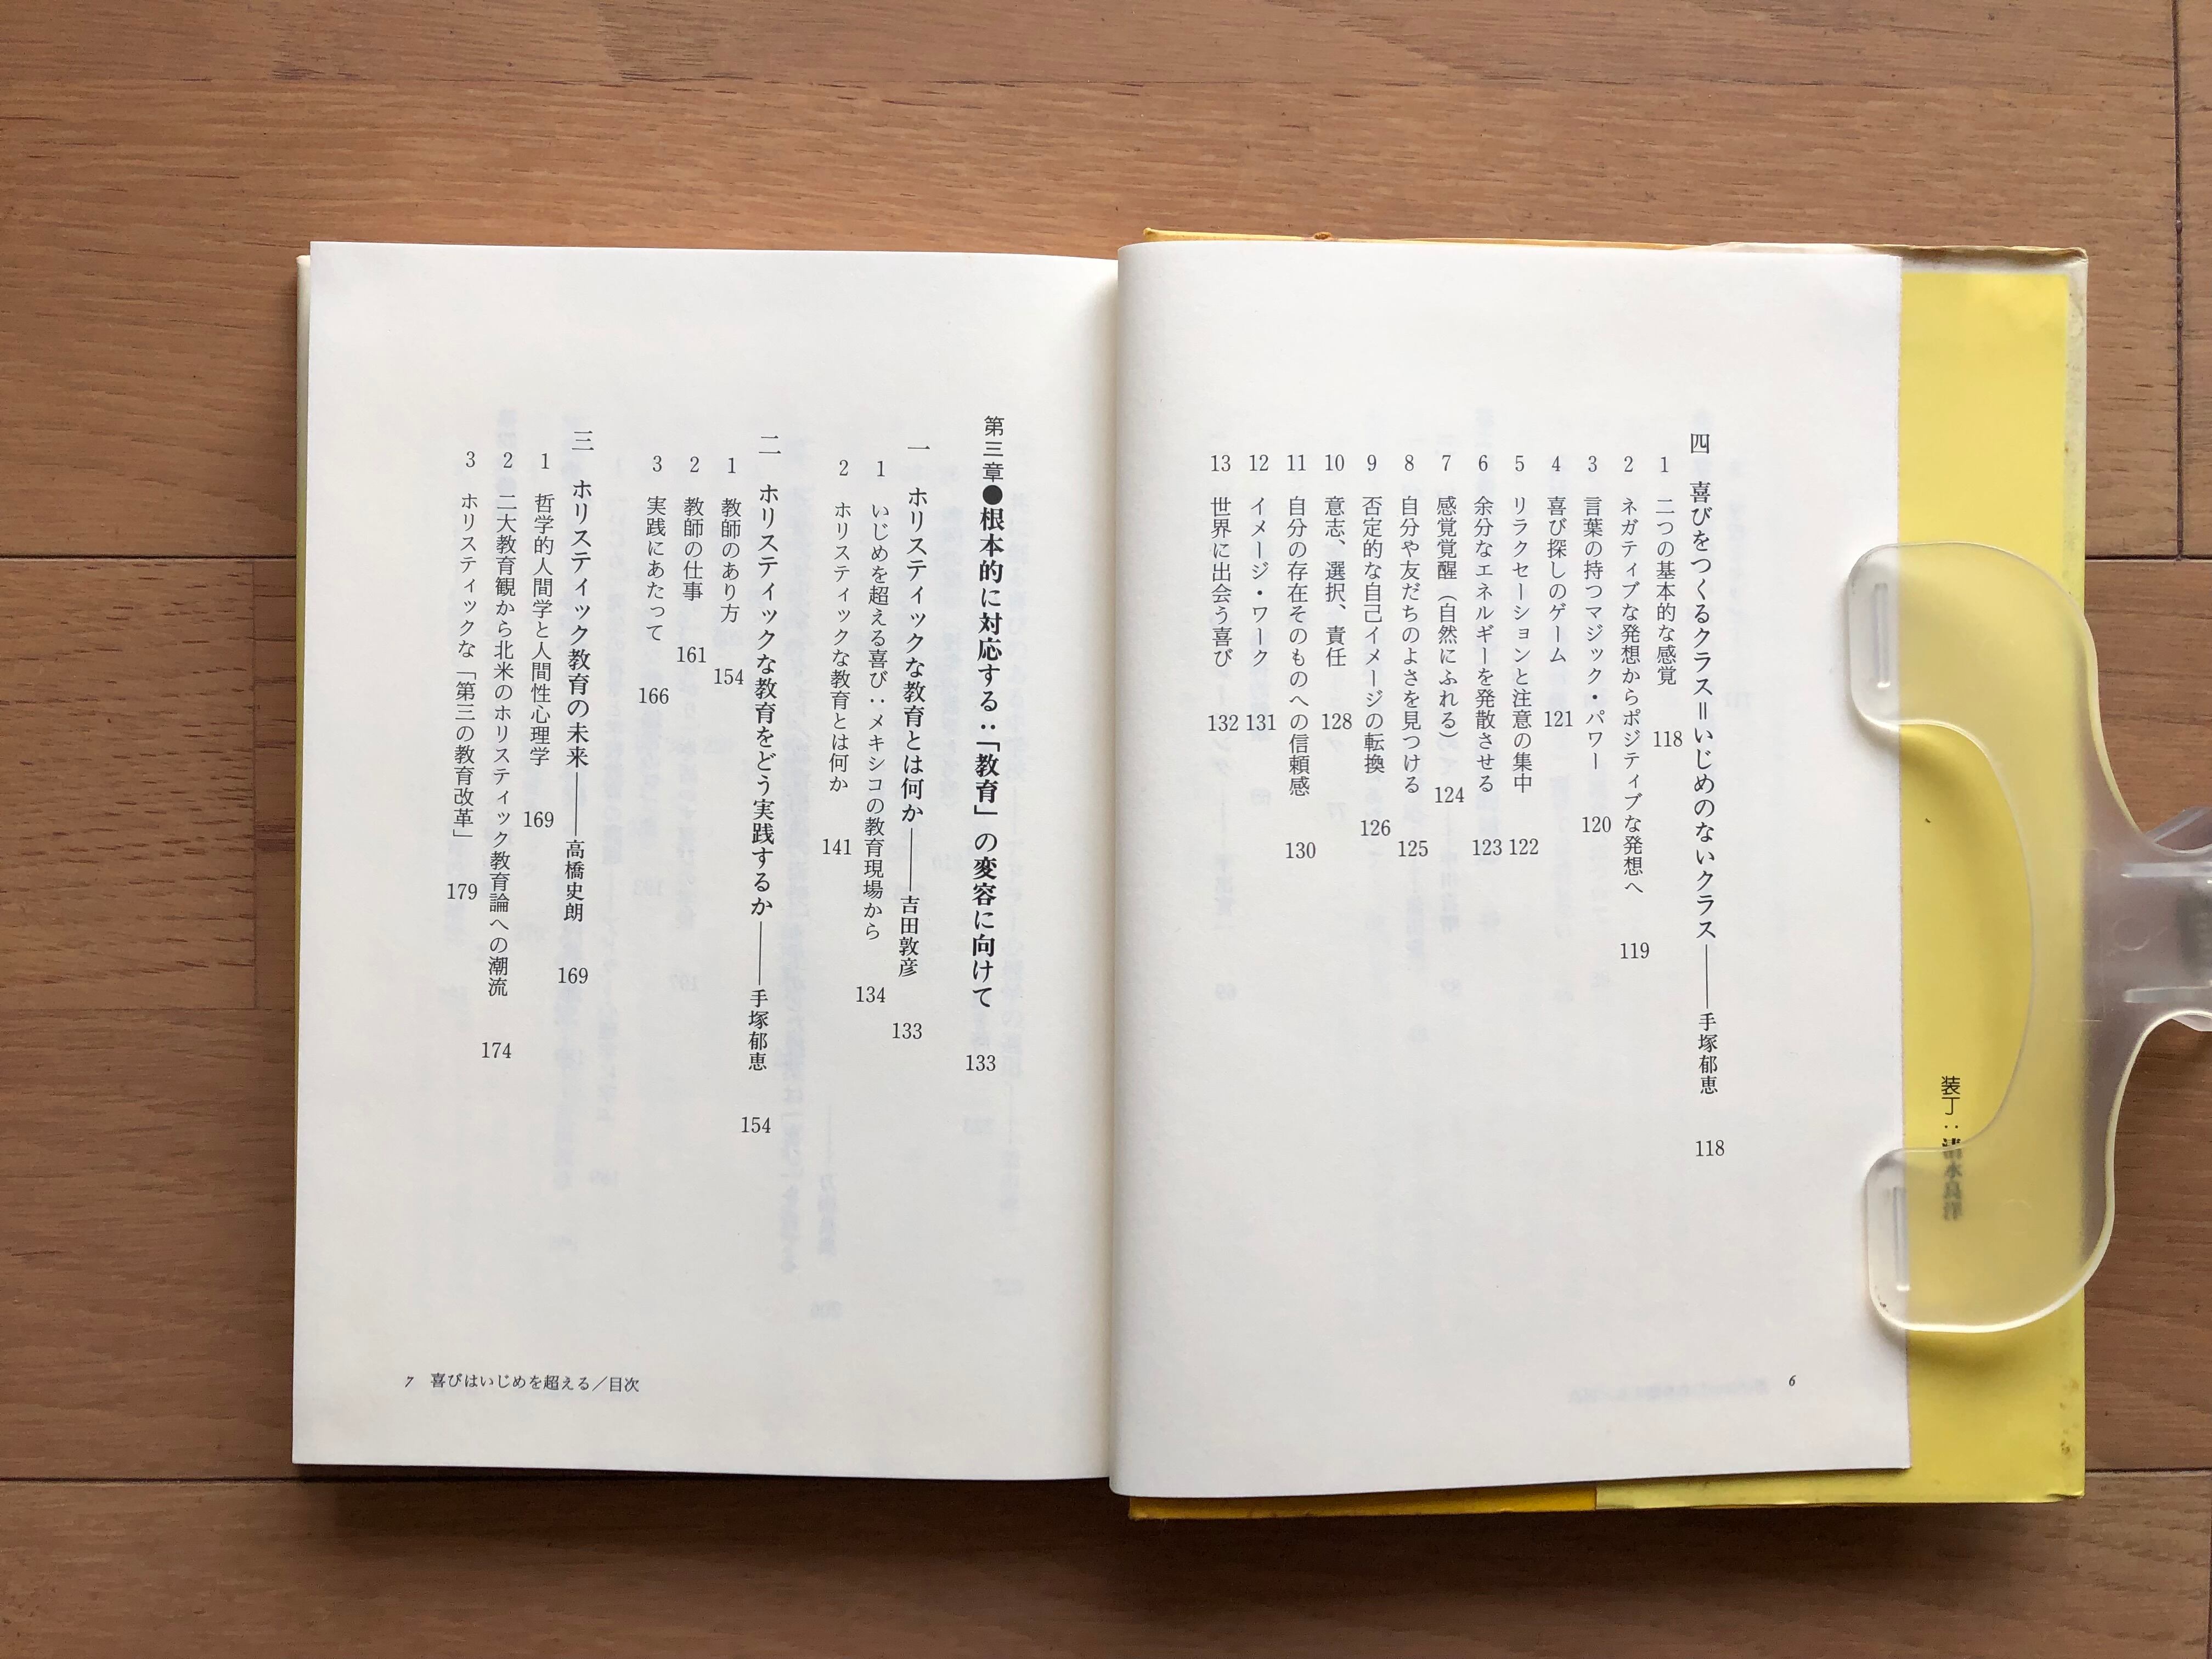 装丁：清水良洋
四　喜びをつくるクラス＝いじめのないクラス――手塚郁恵　118
1　二つの基本的な感覚　118
2　ネガティブな発想からポジティブな発想へ　119
3　言葉の持つマジック・パワー　120
4　喜び探しのゲーム　121
5　リラクセーションと注意の集中　122
6　余分なエネルギーを発散させる　123
7　感覚覚醒（自然にふれる）　124
8　自分や友だちのよさを見つける　125
9　否定的な自己イメージの転換　126
10　意志、選択、責任　128
11　自分の存在そのものへの信頼感　130
12　イメージ・ワーク　131
13　世界に出会う喜び　132
6
第三章●根本的に対応する：「教育」の変容に向けて　133
一　ホリスティックな教育とは何か――吉田敦彦　133
1　いじめを超える喜び：メキシコの教育現場から　134
2　ホリスティックな教育とは何か　141
二　ホリスティックな教育をどう実践するか――手塚郁恵　154
1　教師のあり方　154
2　教師の仕事　161
3　実践にあたって　166
三　ホリスティック教育の未来――高橋史朗　169
1　哲学的人間学と人間性心理学　169
2　二大教育観から北米のホリスティック教育論への潮流　174
3　ホリスティックな「第三の教育改革」　179
7　喜びはいじめを超える／目次